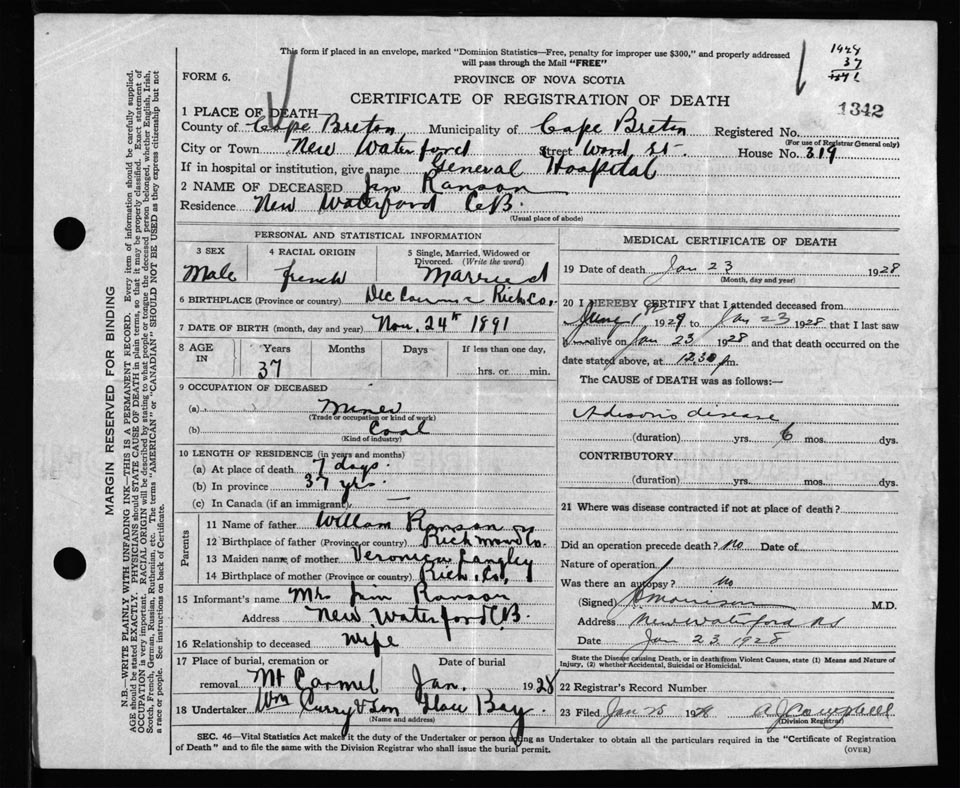 This form if placed in an envelope, marked "Dominion Statistics—Free, penalty for improper use $300," and properly addressed
will pass through the Mail "FREE"
1928
37
FORM 6.
PROVINCE OF NOVA SCOTIA
CERTIFICATE OF REGISTRATION OF DEATH
1342
1 PLACE OF DEATH
County of Cape Breton Municipality of Cape Breton Registered No.
(For use of Registrar General only)
City or Town New Waterford Street Word St. House No. 319
If in hospital or institution, give name General Hospital
2 NAME OF DECEASED Jim Ranson
Residence New Waterford C.B.
(Usual place of abode)
PERSONAL AND STATISTICAL INFORMATION
3 SEX 4 RACIAL ORIGIN 5 Single, Married, Widowed or Divorced. (Write the word)
Male french Married
6 BIRTHPLACE (Province or country) Rich Co.
7 DATE OF BIRTH (month, day and year) Nov. 24th 1891
8 AGE IN Years Months Days If less than one day,
37 hrs. or min.
9 OCCUPATION OF DECEASED
(a) Miner
(Trade or occupation or kind of work)
(b) Coal
(Kind of industry)
10 LENGTH OF RESIDENCE (in years and months)
(a) At place of death 7 days.
(b) In province 37 yrs
(c) In Canada (if an immigrant) —
Parents
11 Name of father William Ranson
12 Birthplace of father (Province or country) Richmond Co.
13 Maiden name of mother Veronica Langley
14 Birthplace of mother (Province or country) Rich. Co.
15 Informant's name Mrs Jim Ranson
Address New Waterford C.B.
16 Relationship to deceased Wife
17 Place of burial, cremation or removal Mt Carmel Date of burial Jan. 1928
18 Undertaker Wm Curry & Son Glace Bay.
(Name and address)
MEDICAL CERTIFICATE OF DEATH
19 Date of death Jan 23 1928
(Month, day and year)
20 I HEREBY CERTIFY that I attended deceased from
June 1 192 to Jan 23 1928 that I last saw
h alive on Jan 23 1928 and that death occurred on the
date stated above, at 12.30 pm.
The CAUSE OF DEATH was as follows:—
Adisons disease
(duration) yrs. 6 mos. dys.
CONTRIBUTORY
(duration) yrs. mos. dys.
21 Where was disease contracted if not at place of death?
Did an operation precede death? No Date of
Nature of operation
Was there an autopsy? No
(Signed) Morrison M.D.
Address New Waterford NS
Date Jan 23 1928
State the Disease causing Death, or in death from Violent Causes, state (1) Means and Nature of
Injury, (2) whether Accidental, Suicidal or Homicidal.
22 Registrar's Record Number
23 Filed Jan 25 1928 A J Campbell
(Division Registrar)
SEC. 46—Vital Statistics Act makes it the duty of the Undertaker or person acting as Undertaker to obtain all the particulars required in the "Certificate of Registration
of Death" and to file the same with the Division Registrar who shall issue the burial permit.
(OVER)
MARGIN RESERVED FOR BINDING
N.B.—WRITE PLAINLY WITH UNFADING INK—THIS IS A PERMANENT RECORD. Every item of information should be carefully supplied.
AGE should be stated EXACTLY. PHYSICIANS should STATE CAUSE OF DEATH in plain terms, so that it may be properly classified. Exact statement of
OCCUPATION is very important. RACIAL ORIGIN will be described by stating to what people or tongue the deceased person belonged, whether English, Irish,
Scotch, French, German, Russian, Ruthenian, etc. The terms "AMERICAN" or "CANADIAN" SHOULD NOT BE USED as they express citizenship but not
a race or people. See instructions on back of Certificate.